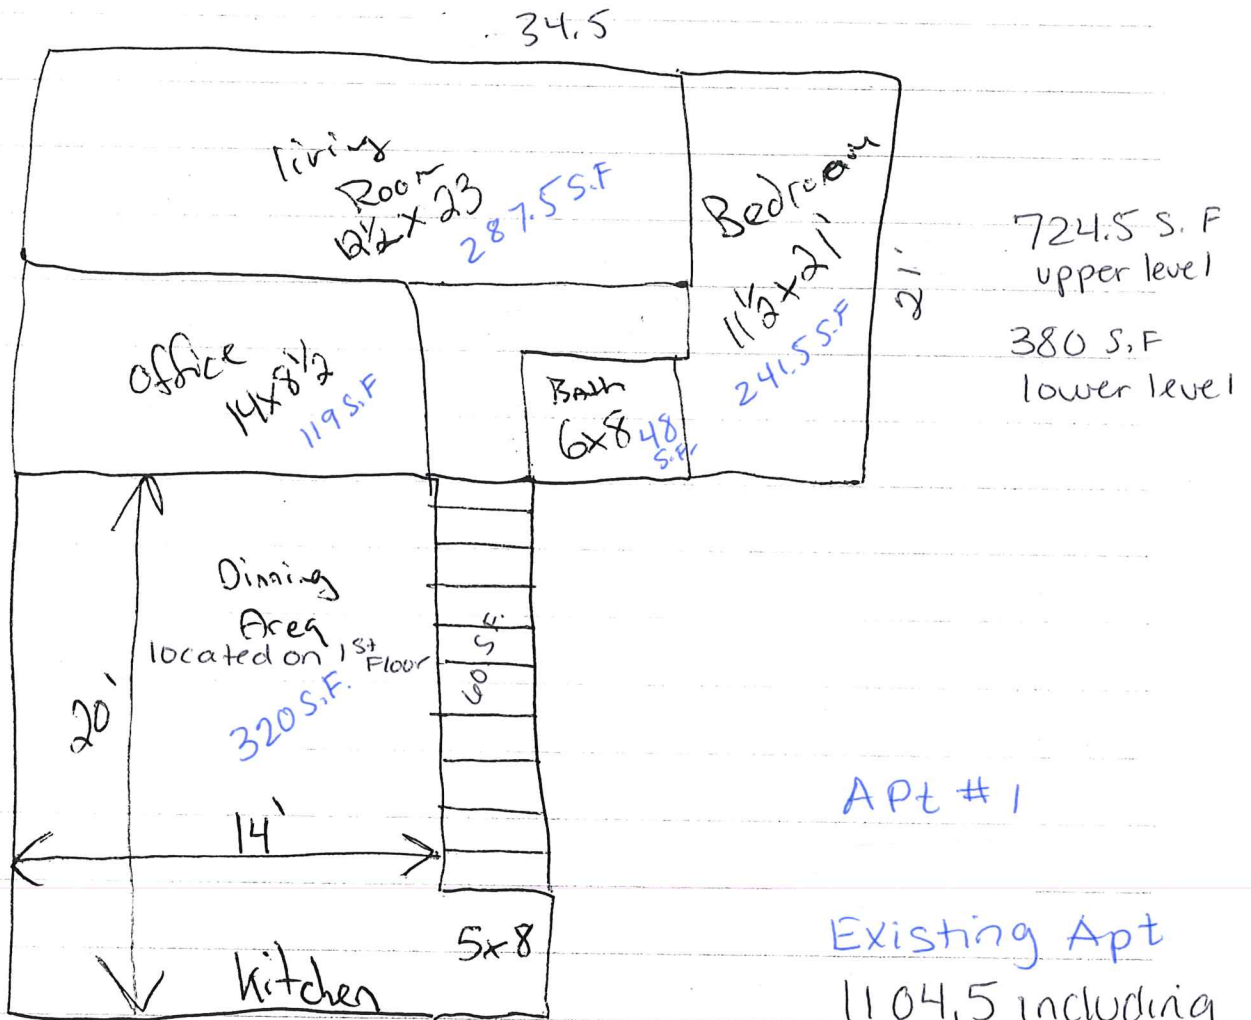 34.5
living
Room
12½ x 23
287.5 S.F
Bedroom
11½ x 21'
241.5 S.F
21'
724.5 S.F
upper level
380 S.F
lower level
office
14x8½
119 S.F
Bath
6x8 48
S.F.
Dinning
Area
located on 1st
Floor
320 S.F.
20'
14'
60 S.F.
5x8
Kitchen
APt # 1
Existing Apt
1104.5 including